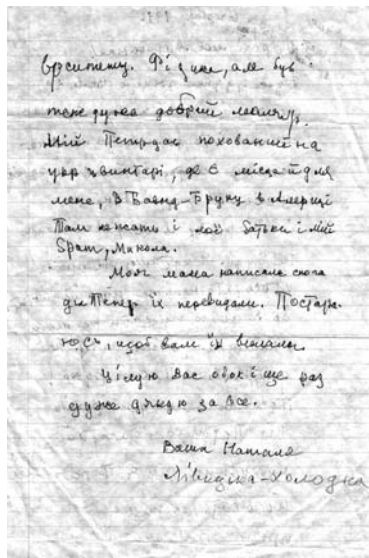 верситету. Фізик, але був
теж дуже добрий маляр.
Мій Петро похований на
укр цвинтарі, де є місце й для
мене, в Бавнд-Бруку в Америці
Там лежать і мої батьки і мій
брат, Микола.
Моя мама написала спога
ди Тепер їх перевидали. Постара
юсь, щоб вам їх вислали.
Цілую Вас обох і ще раз
дуже дякую за все.
Ваша Наталя
Лівицька-Холодна